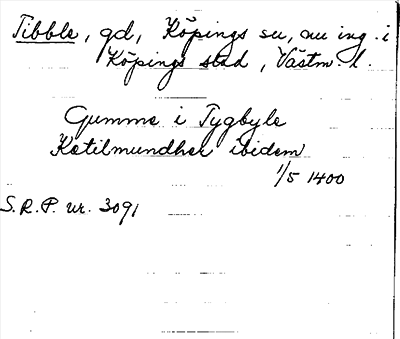 Tibble, gd, Köpings su, nu ing. i
Köpings stad, Västm. l.
Gumme i Tygbyle
Ketilmundher ibidem
1/5 1400
S.R.P. nr. 3091